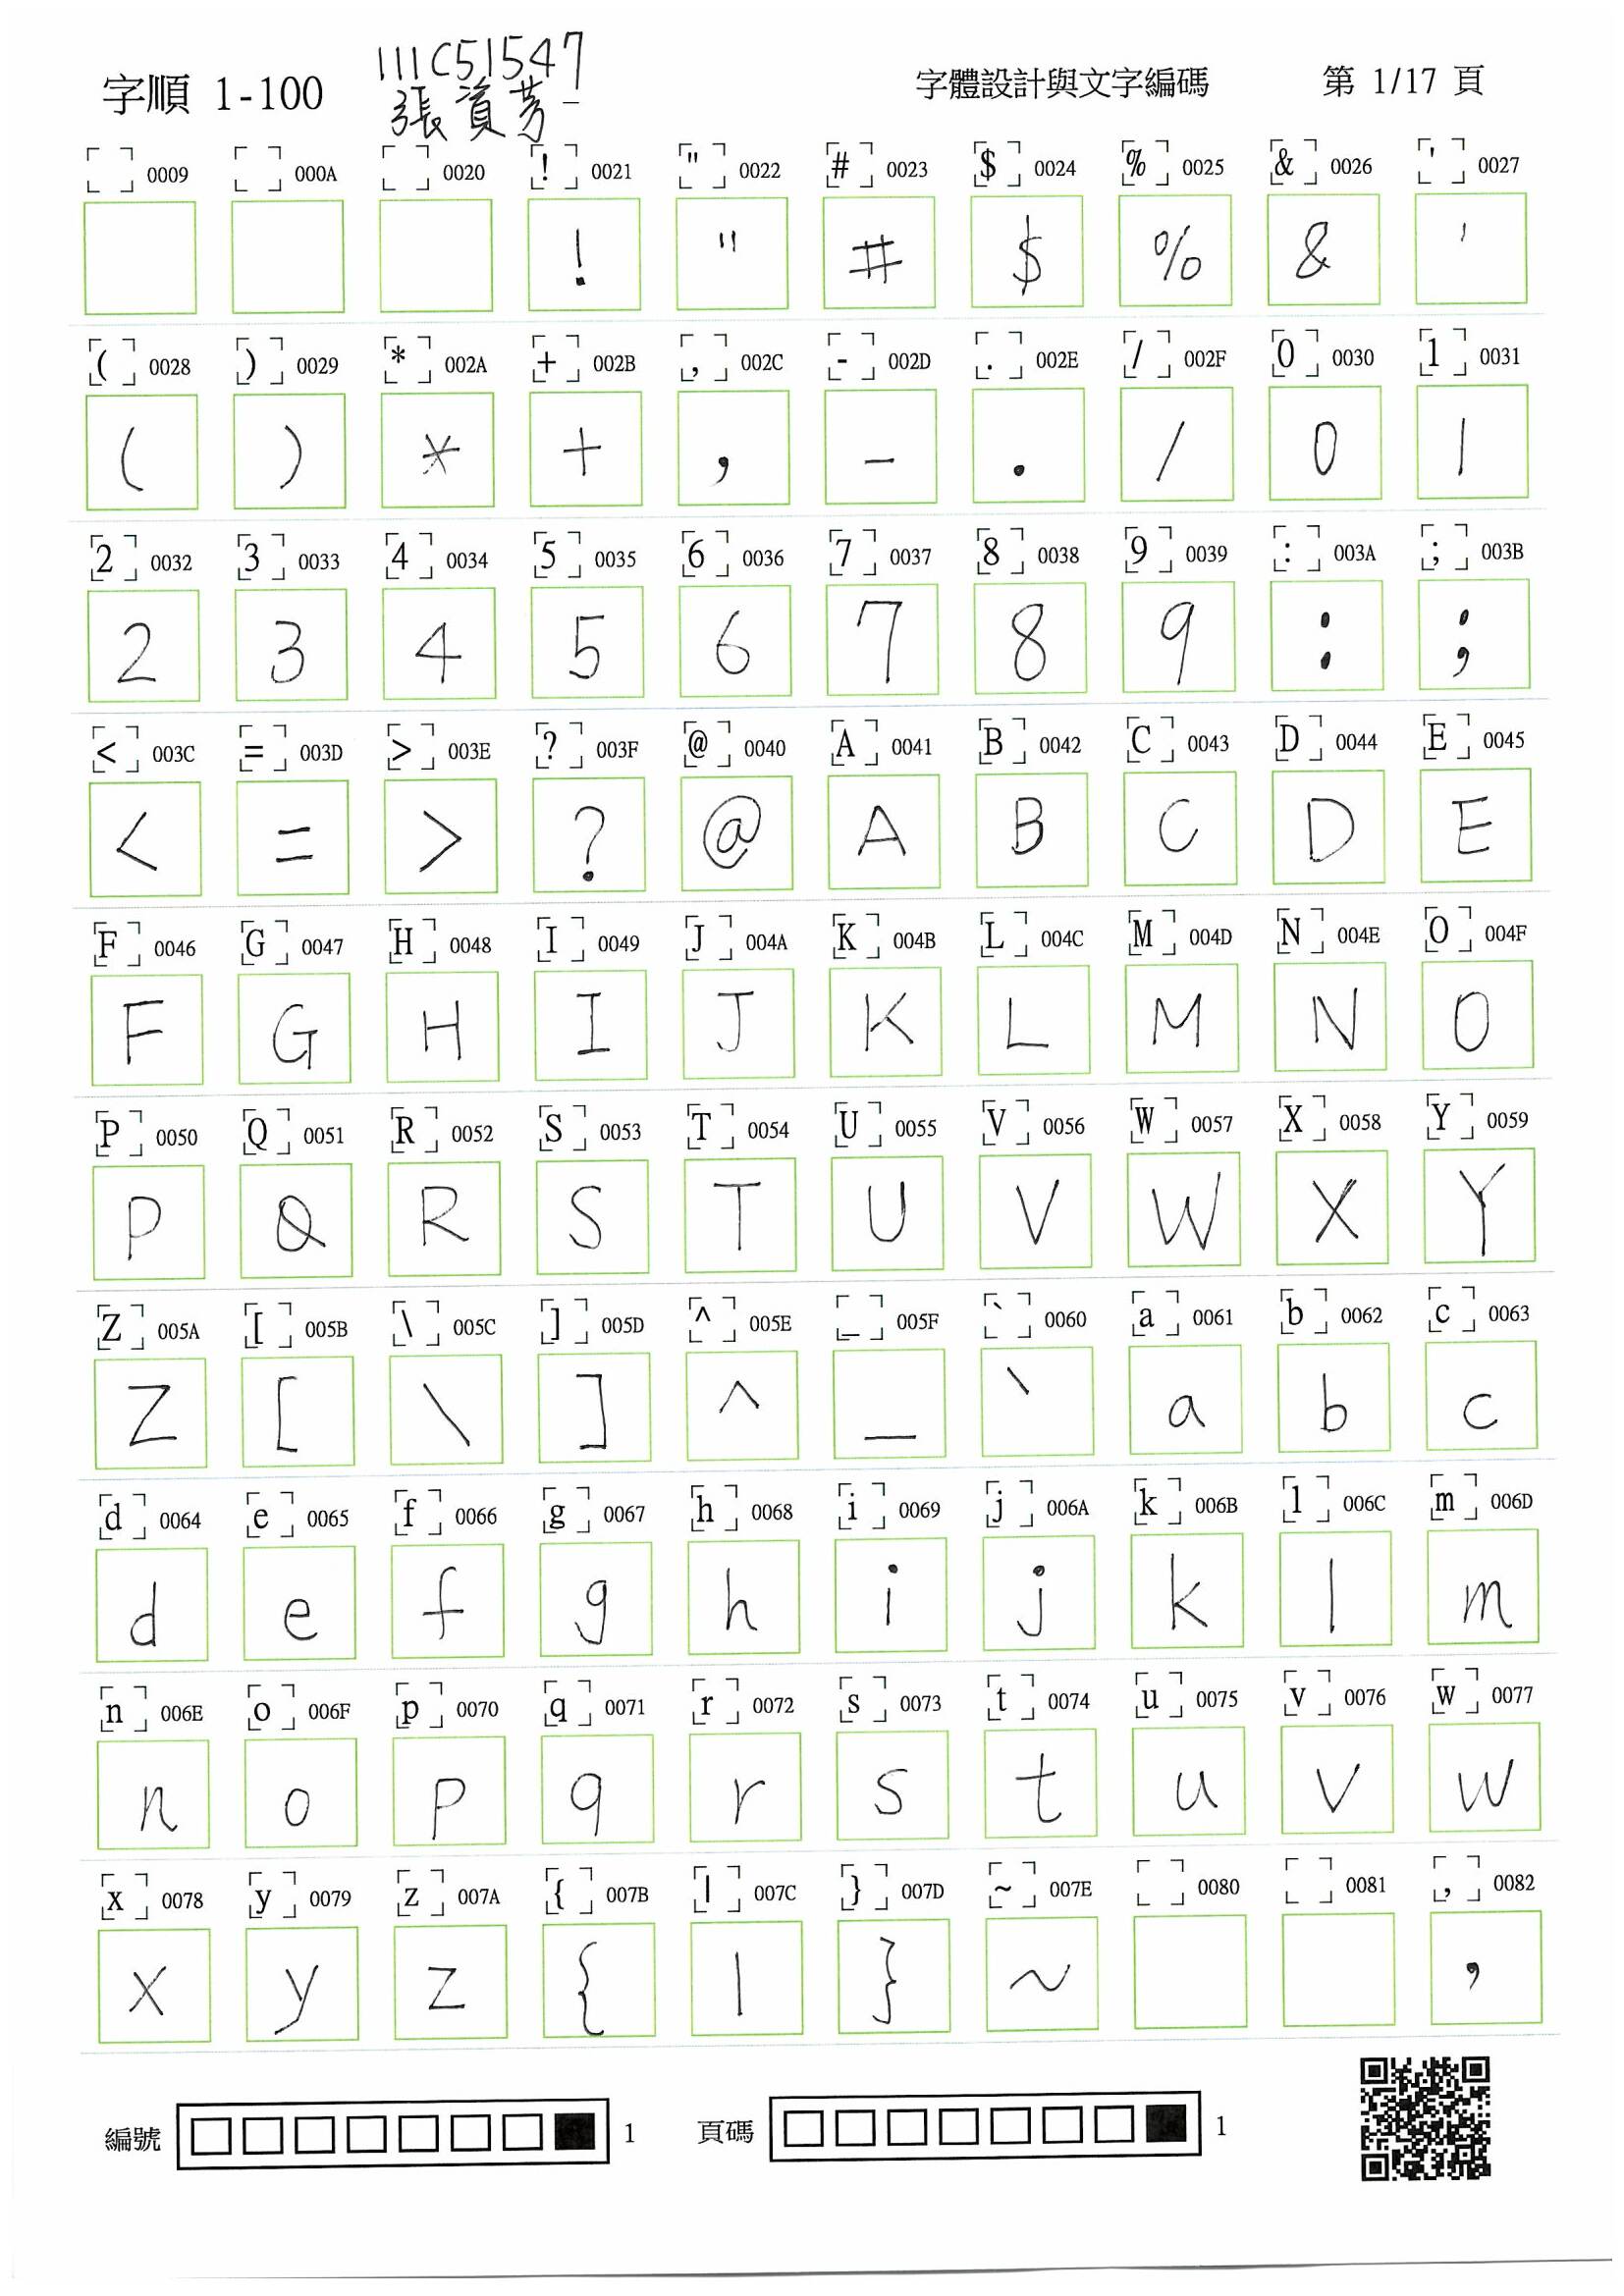 111C51547
字順 1-100 張資芳 字體設計與文字編碼 第 1/17 頁
0009 000A 0020 ! 0021 " 0022 # 0023 $ 0024 % 0025 & 0026 ' 0027
! " # $ % & '
( 0028 ) 0029 * 002A + 002B , 002C - 002D . 002E / 002F 0 0030 1 0031
( ) * + , - . / 0 1
2 0032 3 0033 4 0034 5 0035 6 0036 7 0037 8 0038 9 0039 : 003A ; 003B
2 3 4 5 6 7 8 9 : ;
< 003C = 003D > 003E ? 003F @ 0040 A 0041 B 0042 C 0043 D 0044 E 0045
< = > ? @ A B C D E
F 0046 G 0047 H 0048 I 0049 J 004A K 004B L 004C M 004D N 004E O 004F
F G H I J K L M N O
P 0050 Q 0051 R 0052 S 0053 T 0054 U 0055 V 0056 W 0057 X 0058 Y 0059
P Q R S T U V W X Y
Z 005A [ 005B \ 005C ] 005D ^ 005E _ 005F ` 0060 a 0061 b 0062 c 0063
Z [ \ ] ^ _ ` a b c
d 0064 e 0065 f 0066 g 0067 h 0068 i 0069 j 006A k 006B l 006C m 006D
d e f g h i j k l m
n 006E o 006F p 0070 q 0071 r 0072 s 0073 t 0074 u 0075 v 0076 w 0077
n o p q r s t u v w
x 0078 y 0079 z 007A { 007B | 007C } 007D ~ 007E 0080 0081 , 0082
x y z { | } ~ ,
編號 1 頁碼 1